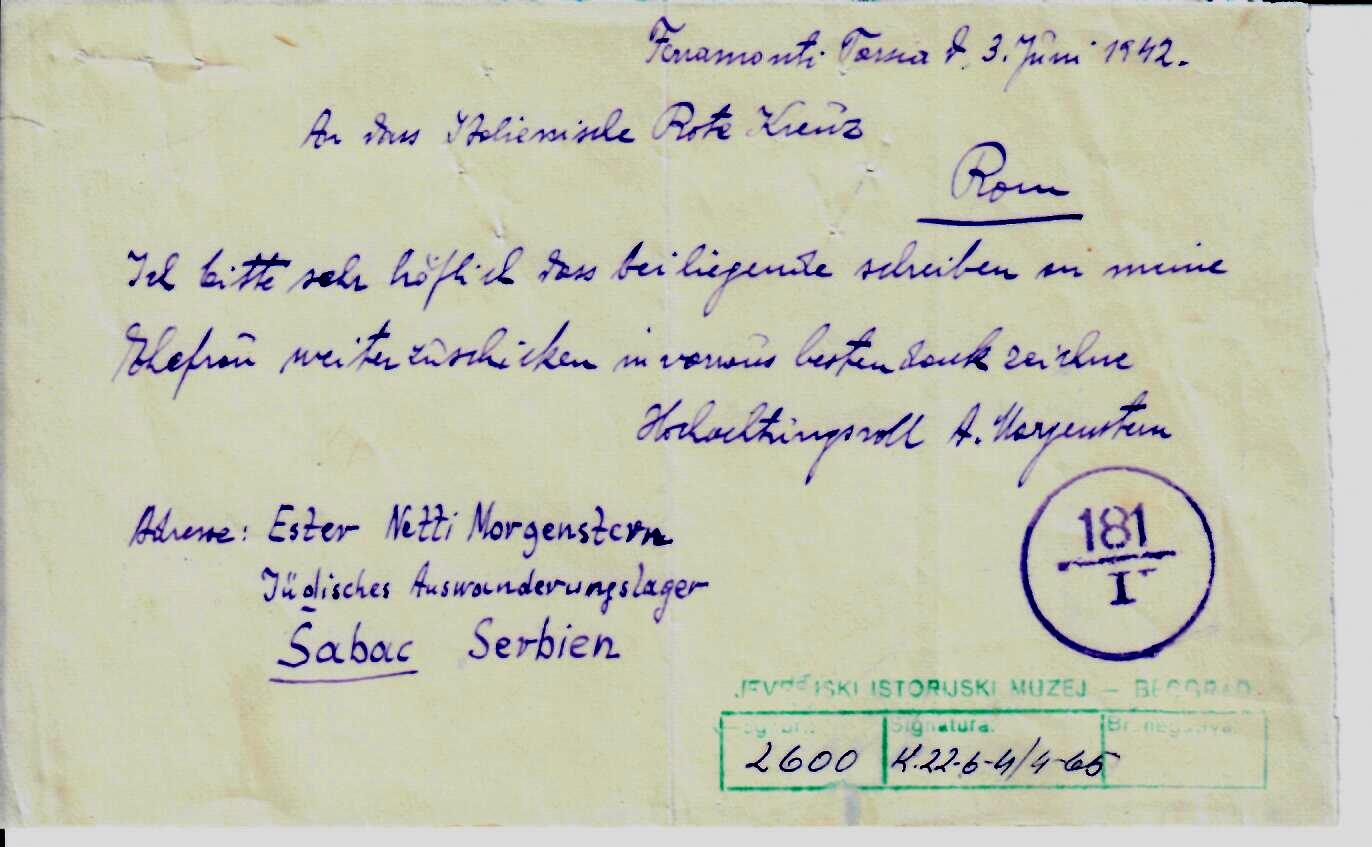 Ferramonti Tarsia d. 3. Juni 1942.
An das Italienische Rote Kreuz
Rom
Ich bitte sehr höflich dass beiliegende schreiben an meine
Ehefrau weiterzuschicken in vorraus besten dank zeichne
Hochachtungsvoll A. Morgenstern
Adresse: Ester Netti Morgenstern
Jüdisches Auswanderungslager
Šabac Serbien
181
I
JEVREJSKI ISTORIJSKI MUZEJ – BEOGRAD
Signatura: Br. negativa
2600 K.22-6-4/4-65